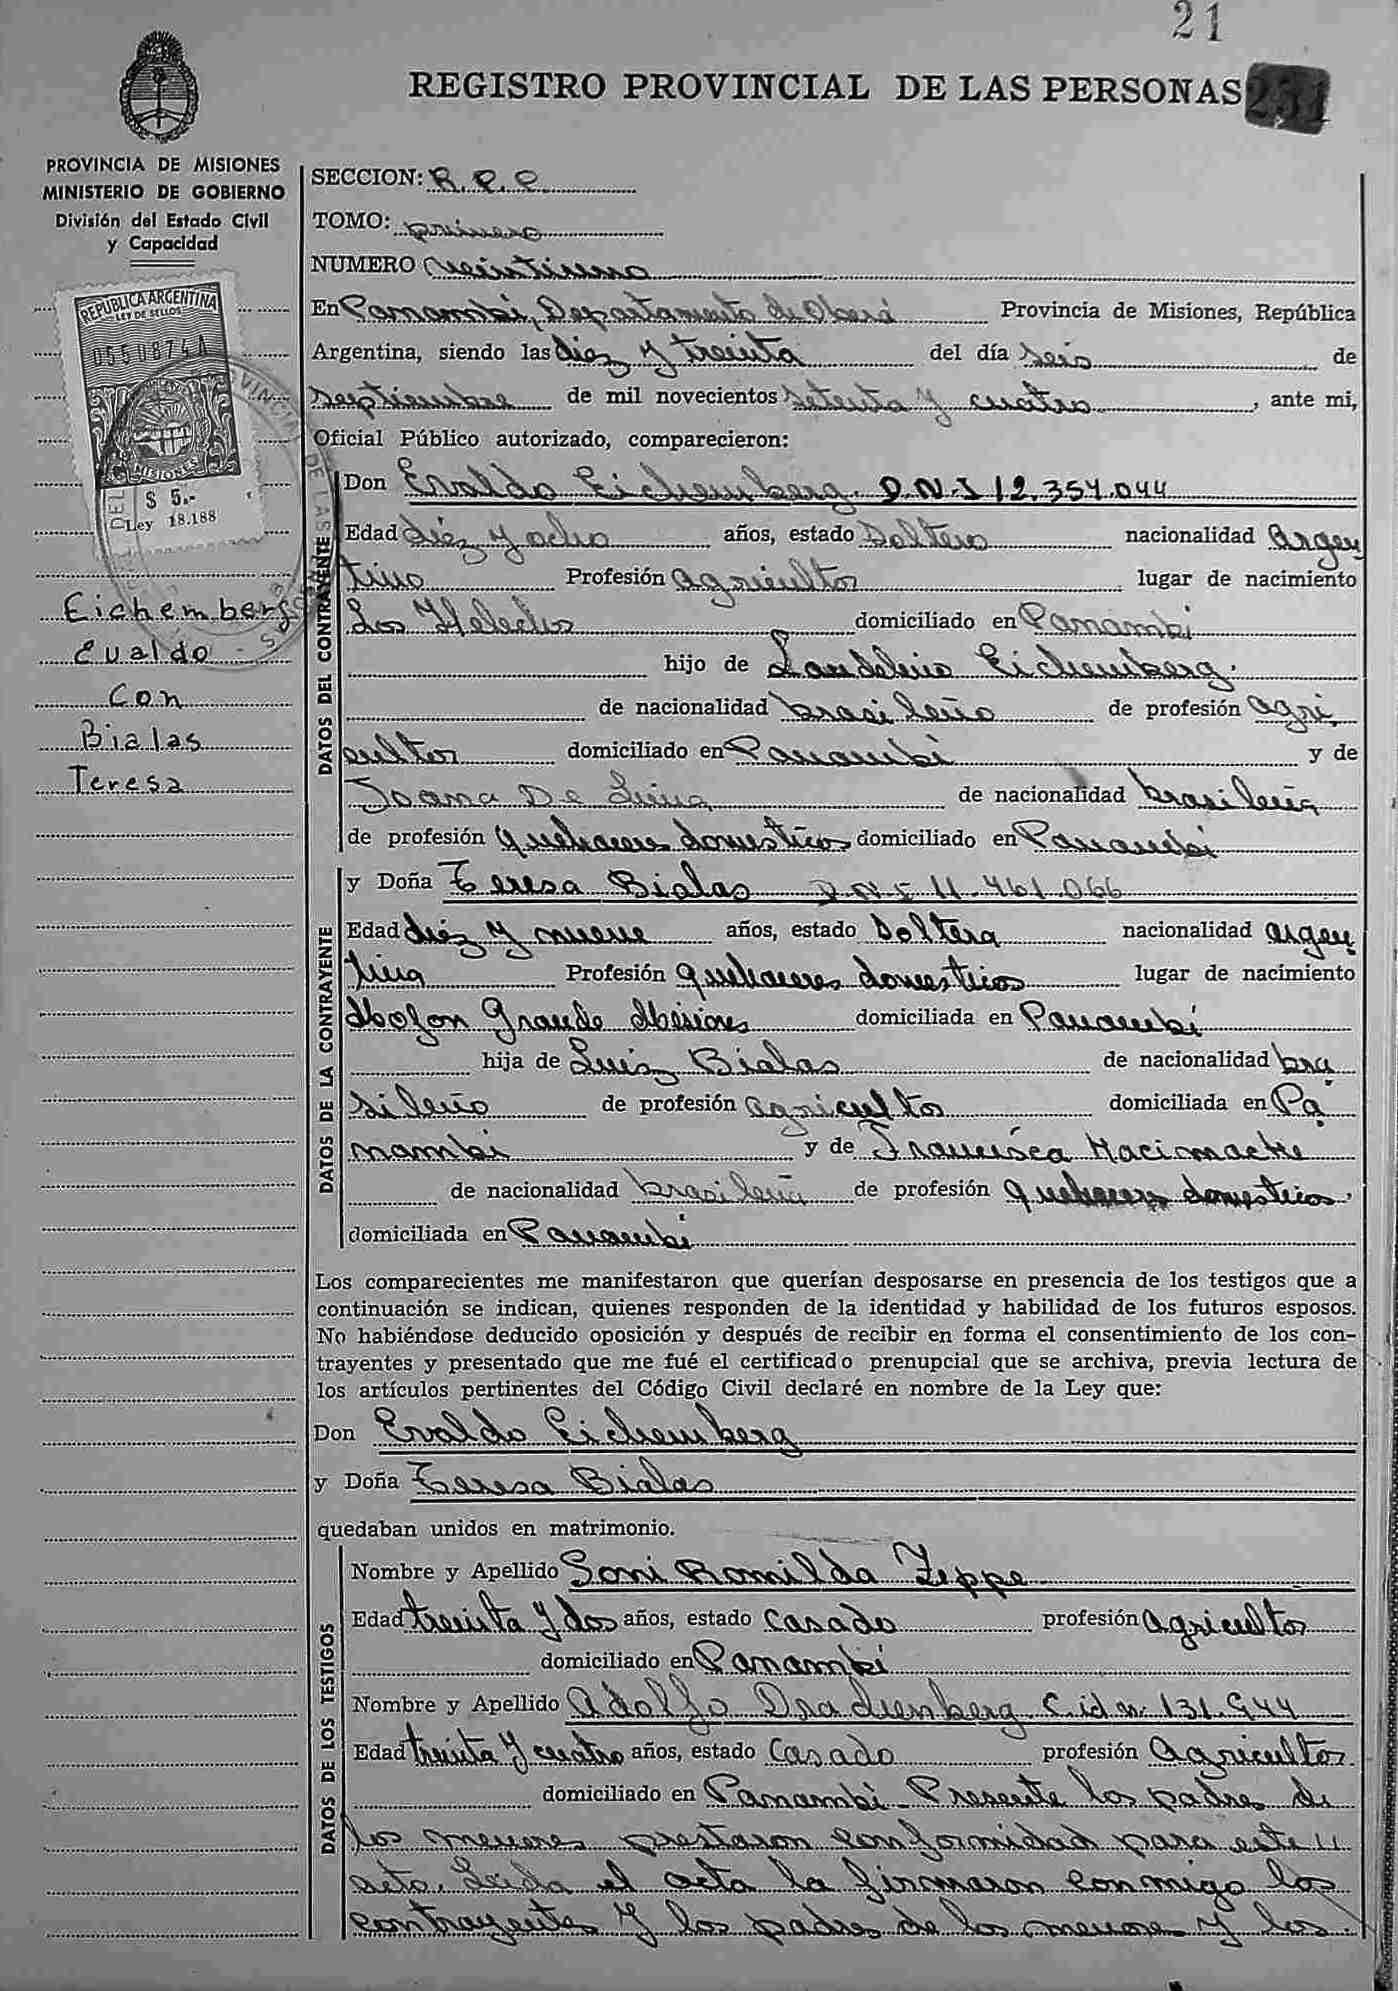 21
REGISTRO PROVINCIAL DE LAS PERSONAS 251
PROVINCIA DE MISIONES
MINISTERIO DE GOBIERNO
División del Estado Civil
y Capacidad
REPUBLICA ARGENTINA
LEY DE SELLOS
0550874A
MISIONES
$ 5.-
Ley 18.188
Eichemberg
Evaldo
Con
Bialas
Teresa
SECCION: R.P.P.
TOMO: primero
NUMERO veintiuno
En Panambi, Departamento de Oberá Provincia de Misiones, República
Argentina, siendo las diez y treinta del día seis de
septiembre de mil novecientos setenta y cuatro, ante mi,
Oficial Público autorizado, comparecieron:
DATOS DEL CONTRAYENTE
Don Evaldo Eichemberg. D.N.I 12.354.044
Edad diéz y ocho años, estado Soltero nacionalidad Argen
tino Profesión agricultor lugar de nacimiento
Los Helechos domiciliado en Panambi
hijo de Laudelino Eichemberg.
de nacionalidad brasileño de profesión agri
cultor domiciliado en Panambí y de
Joana De Lima de nacionalidad brasileña
de profesión quehaceres domesticos domiciliado en Panambí
DATOS DE LA CONTRAYENTE
y Doña Teresa Bialas D.N.I 11.461.066
Edad diéz y nueve años, estado Soltera nacionalidad argen
tina Profesión quehaceres domesticos lugar de nacimiento
Mojon Grande Misiones domiciliada en Panambí
hija de Luiz Bialas de nacionalidad bra
sileño de profesión agricultor domiciliada en Pa
nambi y de Francisca
de nacionalidad brasileña de profesión quehaceres domesticos.
domiciliada en Panambí
Los comparecientes me manifestaron que querían desposarse en presencia de los testigos que a
continuación se indican, quienes responden de la identidad y habilidad de los futuros esposos.
No habiéndose deducido oposición y después de recibir en forma el consentimiento de los con-
trayentes y presentado que me fué el certificado prenupcial que se archiva, previa lectura de
los artículos pertinentes del Código Civil declaré en nombre de la Ley que:
Don Evaldo Eichemberg
y Doña Teresa Bialas
quedaban unidos en matrimonio.
DATOS DE LOS TESTIGOS
Nombre y Apellido Soni Romilda Zeppe
Edad treinta y dos años, estado Casado profesión agricultor
domiciliado en Panambí
Nombre y Apellido Adolfo C.id n. 131.944
Edad treinta y cuatro años, estado Casado profesión Agricultor.
domiciliado en Panambí - Presente los padres de
los menores prestaron conformidad para este
acto. Leida el acta la firmaron conmigo los
contrayentes y los padres de los menores y los